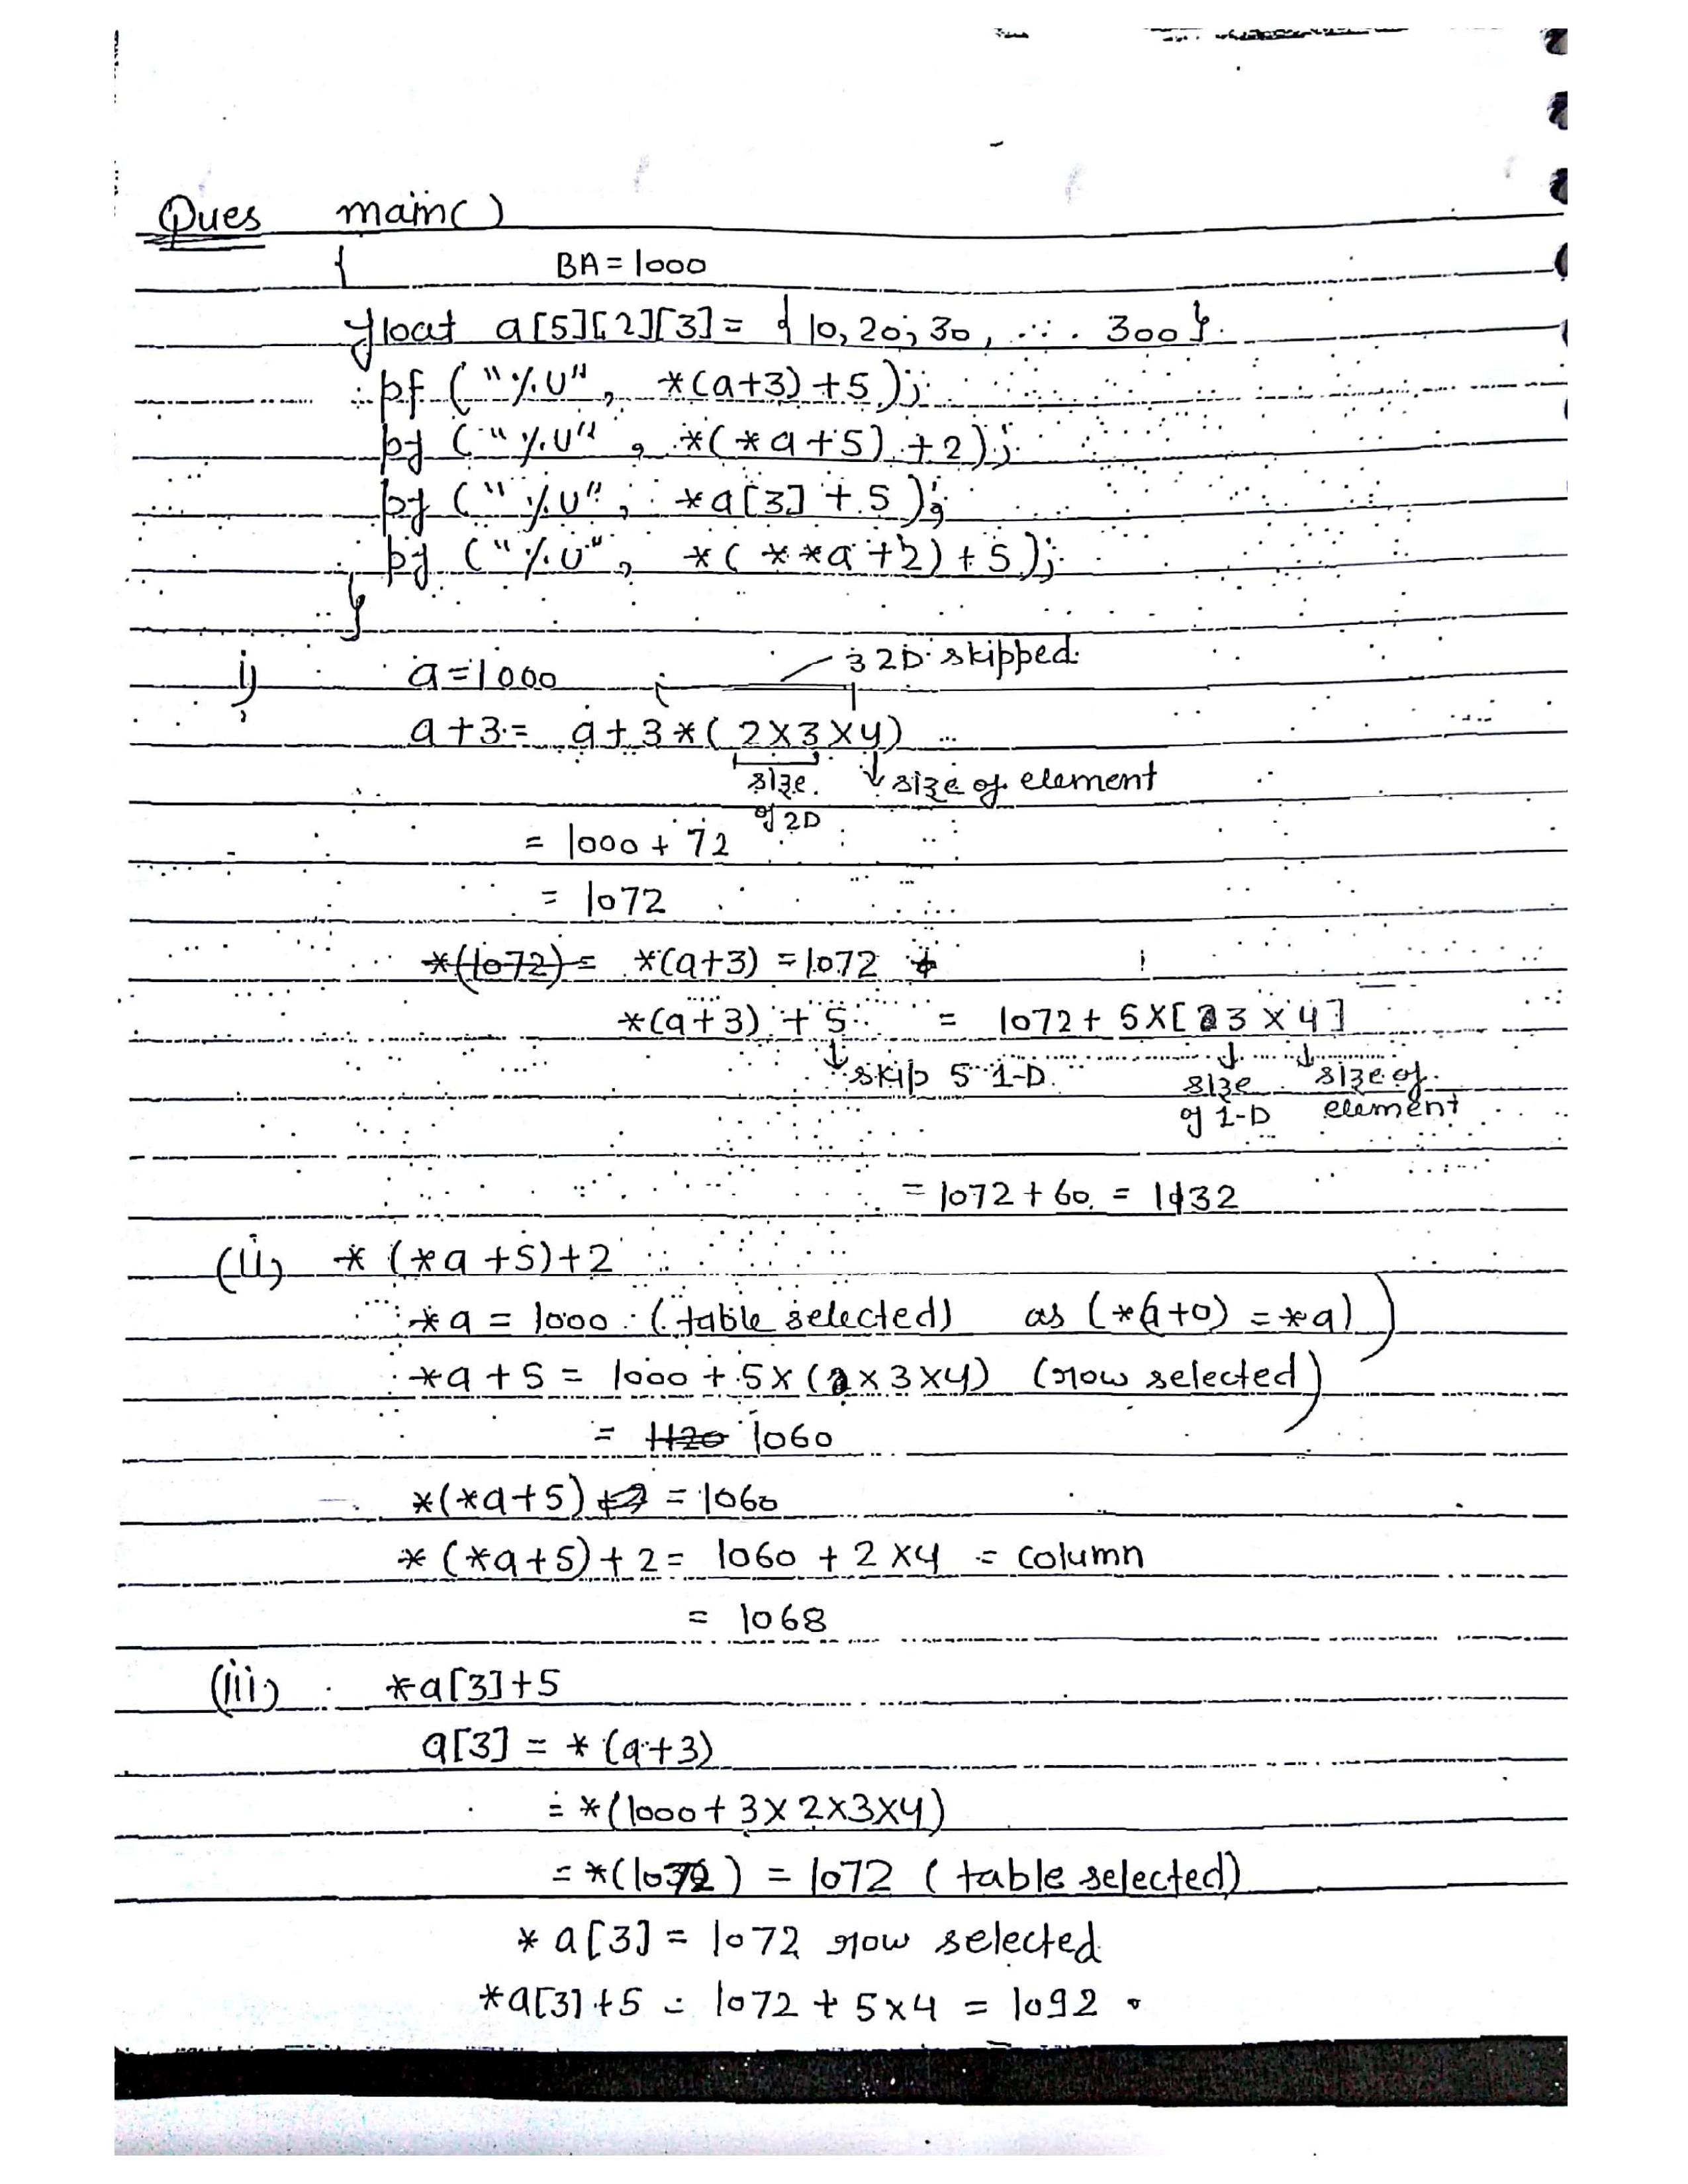 Ques main()
{ BA = 1000
float a[5][2][3] = {10, 20, 30, .... 300}.
pf ("%u", *(a+3)+5);
pf ("%u", *(*a+5)+2);
pf ("%u", *a[3]+5);
pf ("%u", *(**a+2)+5);
}
i) a = 1000 3 2D skipped.
a+3 = a+3*(2x3x4)
size of 2D ↓ size of element
= 1000 + 72
= 1072
*(1072) = *(a+3) = 1072
*(a+3) + 5 = 1072 + 5x[3 x 4]
↓ skip 5 1-D. ↓ size of 1-D ↓ size of element
= 1072 + 60 = 1132
(ii) *(*a+5)+2
*a = 1000 (table selected) as (*(a+0) = *a)
*a+5 = 1000 + 5x(3x4) (row selected)
= 1120 1060
*(*a+5) +2 = 1060
*(*a+5)+2 = 1060 + 2x4 = column
= 1068
(iii) *a[3]+5
a[3] = *(a+3)
= *(1000 + 3x2x3x4)
= *(1072) = 1072 (table selected)
*a[3] = 1072 row selected
*a[3]+5 = 1072 + 5x4 = 1092